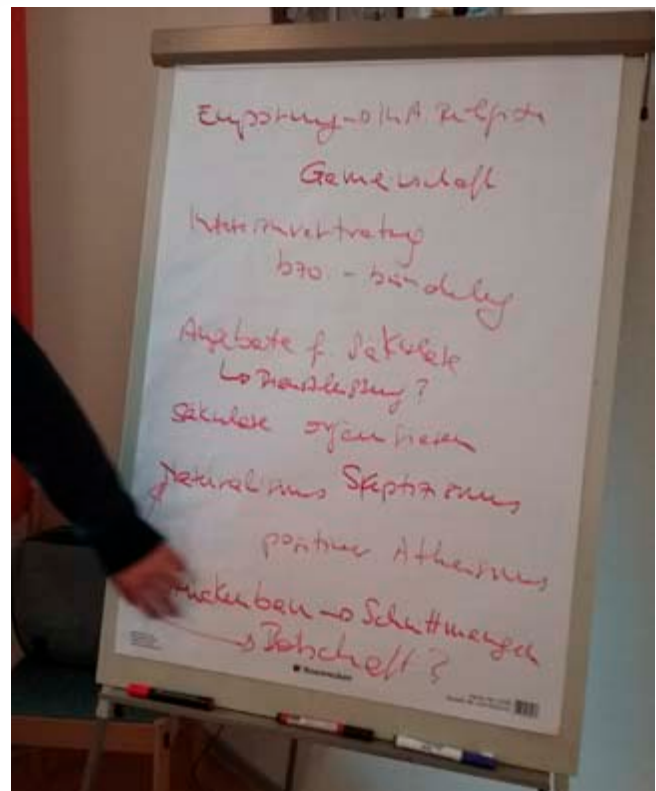 Empörung → 
Gemeinschaft
Interessenvertretung
bzw - bündelung
Angebote f. Säkulare
↳ Dienstleistung?
Säkulare organisieren
Naturalismus Skeptizismus
positiver Atheismus
Brückenbau → Schnittmengen
→ Botschaft?